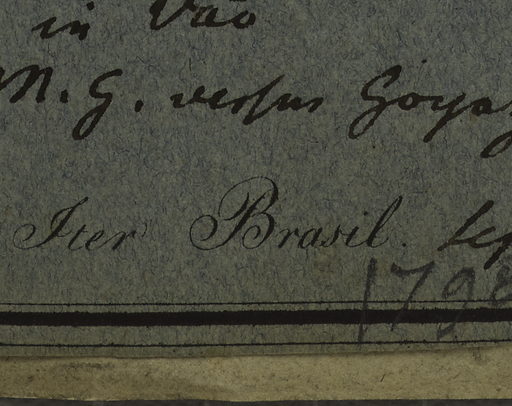 in Vão
M. G. versus Goyaz
Iter Brasil. Sep
179